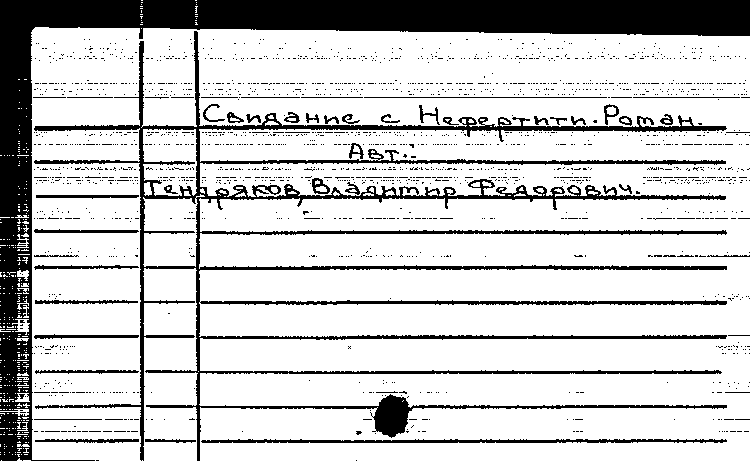 Свидание с Нефертити. Роман.
Авт.:
Тендряков, Владимир Федорович.